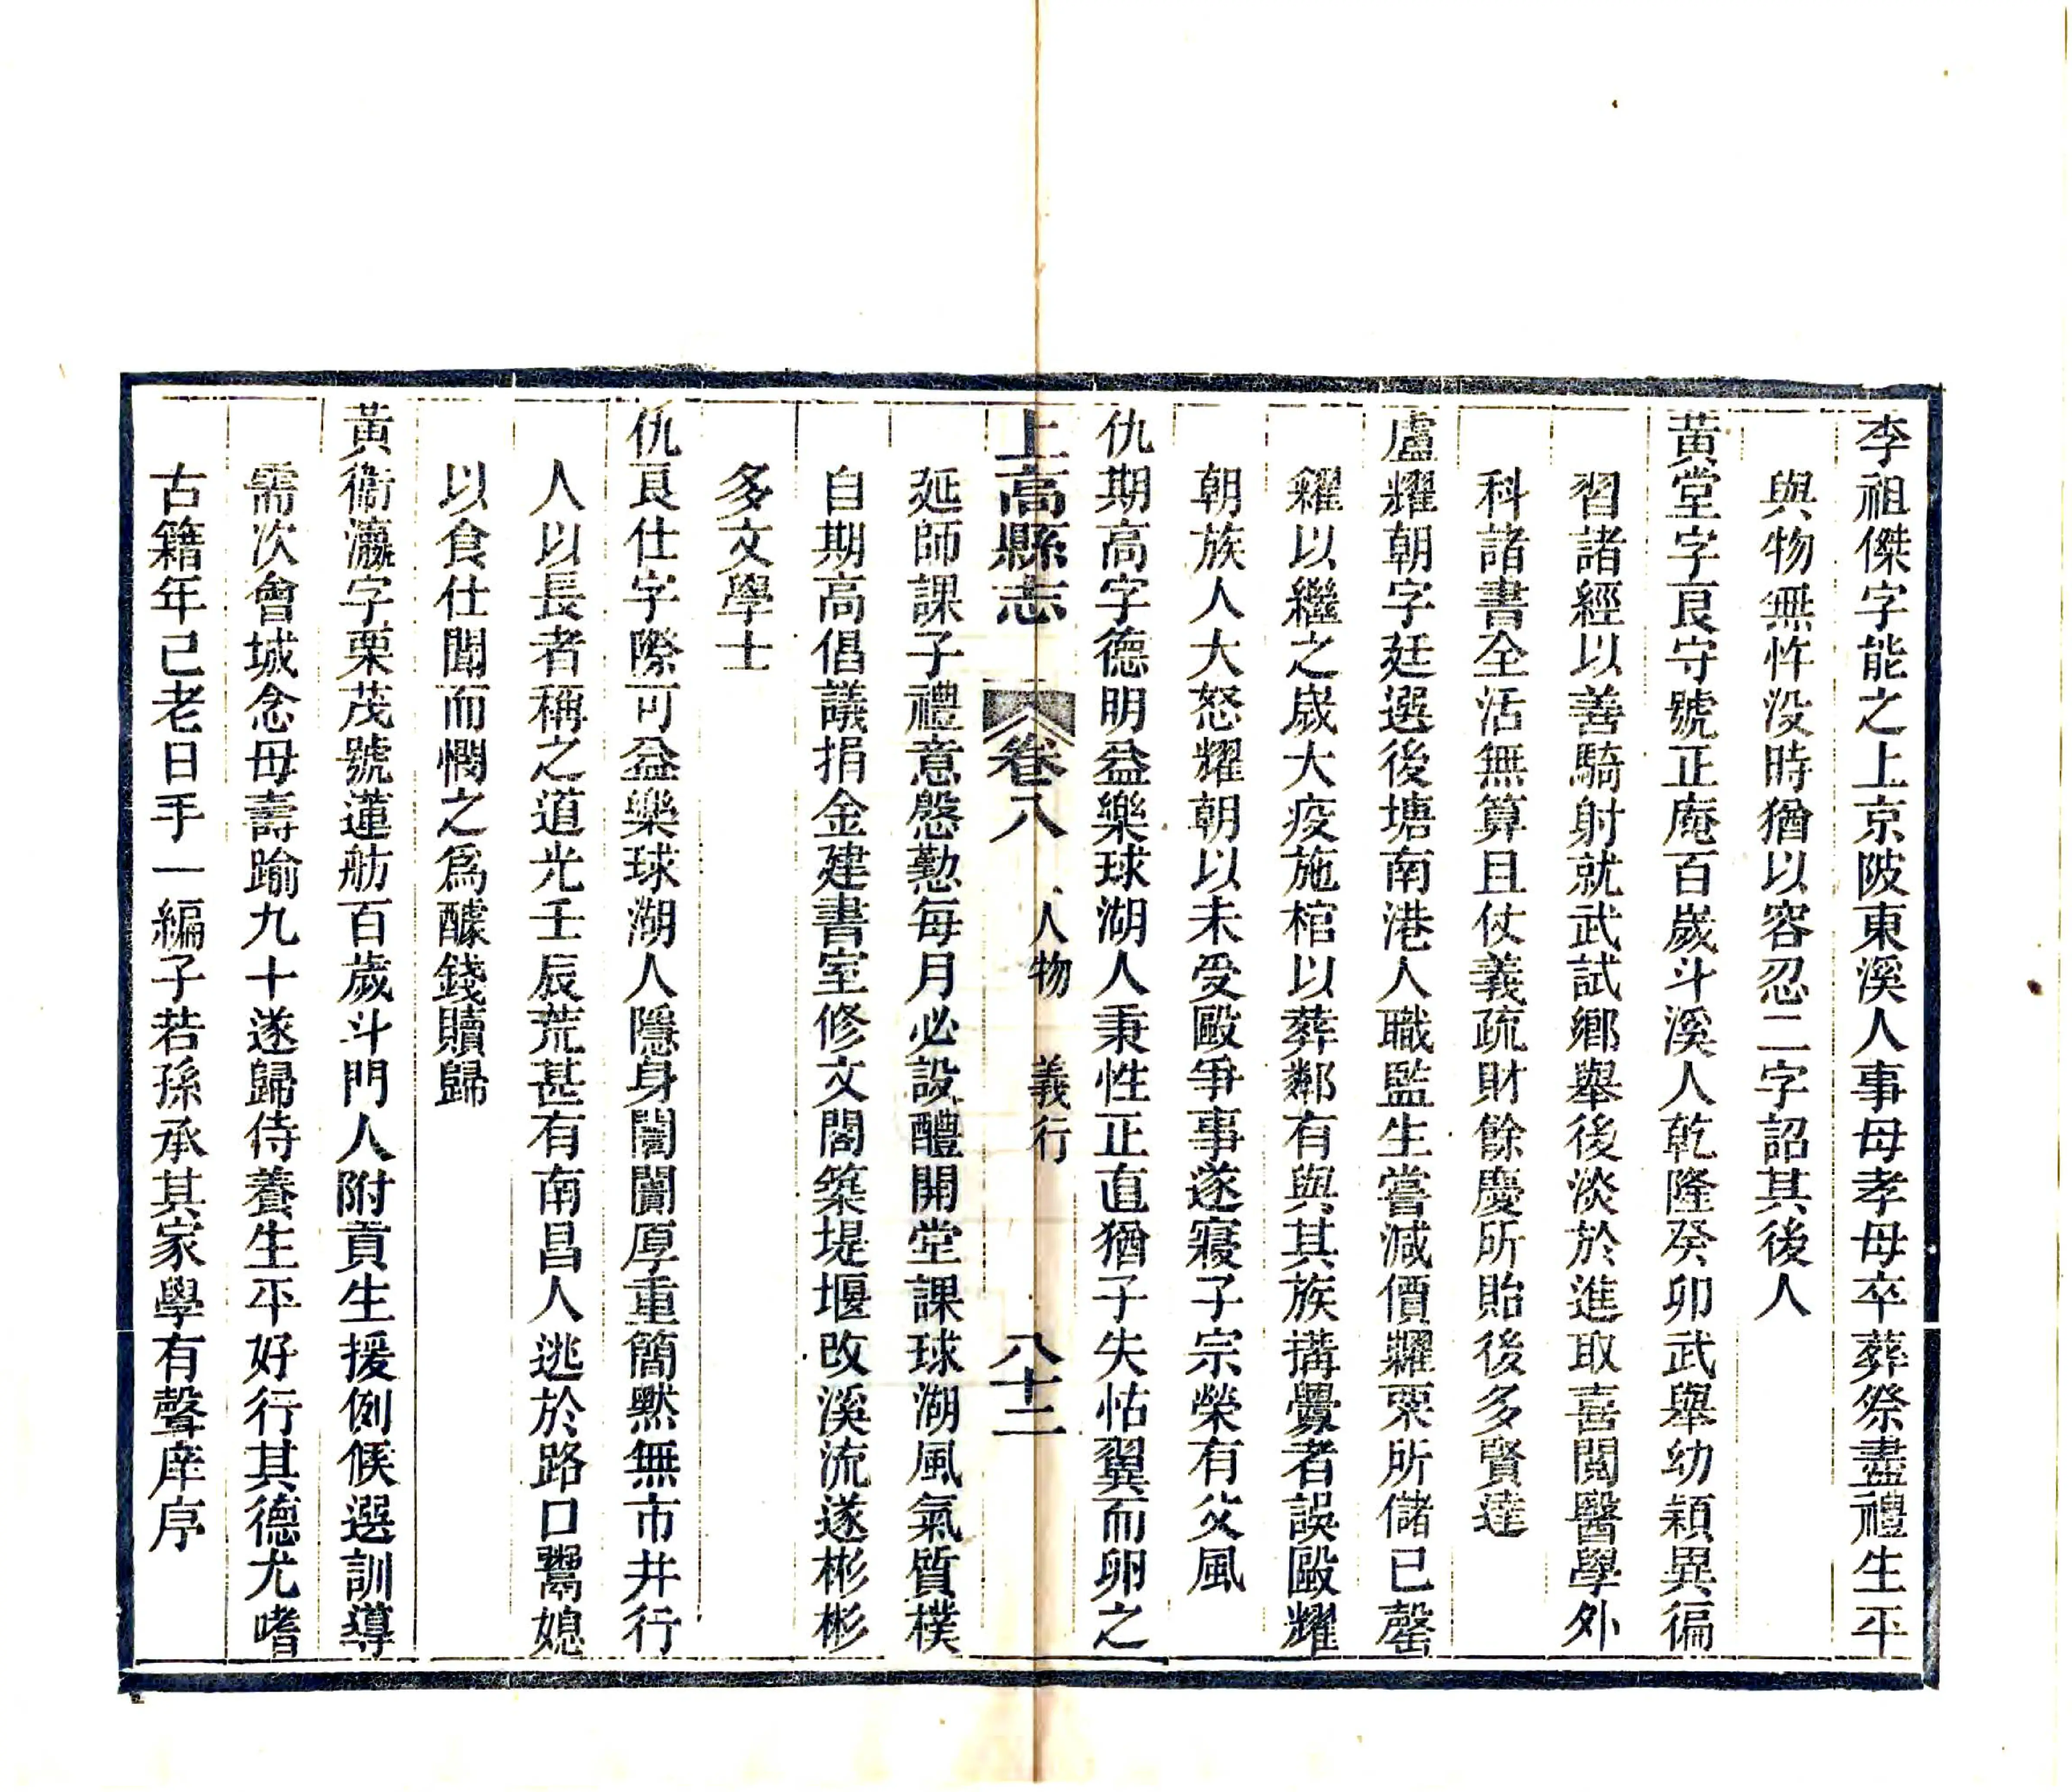 李祖傑字能之上京陂東溪人事母孝母卒葬祭盡禮生平
與物無忤没時猶以容忍二字詔其後人
黄堂字艮守號正庵百嵗斗溪人乾隆癸卯武舉幼穎異徧
習諸經以善騎射就武試鄉舉後淡於進取喜閱醫學外
科諸書全活無算且仗義疏財餘慶所貽後多賢達
盧耀朝字廷選後塘南港人職監生嘗減價糶粟所儲已罄
糴以繼之嵗大疫施棺以葬鄰有與其族搆釁者誤毆耀
朝族人大怒耀朝以未受毆爭事遂寢子宗榮有父風
仇期高字德明益樂球湖人秉性正直猶子失怙翼而卵之
上高縣志 卷八 人物 義行 八十二
延師課子禮意慇懃每月必設醴開堂課球湖風氣質樸
自期高倡議捐金建書室修文閣築堤堰改溪流遂彬彬
多文學士
仇艮仕字際可益樂球湖人隱身闤闠厚重簡默無市井行
人以長者稱之道光壬辰荒甚有南昌人逃於路口鬻媳
以食仕聞而憫之爲醵錢贖歸
黃衢瀛字栗茂號蓮舫百歲斗門人附貢生援例候選訓導
需次會城念母壽踰九十遂歸侍養生平好行其德尤嗜
古籍年已老日手一編子若孫承其家學有聲庠序